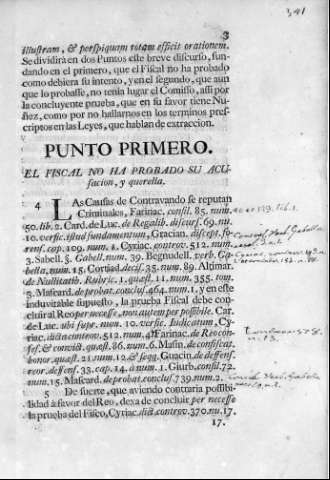 3
illustram, & perspiquam totam efficit orationem.
Se dividirà en dos Puntos este breve discurso, fun-
dando en el primero, que el Fiscal no ha probado
como debiera su intento, y en el segundo, que aun
que lo probasse, no tenia lugar el Comisso, assi por
la concluyente prueba, que en su favor tiene Nu-
ñez, como por no hallarnos en los terminos pres-
criptos en las Leyes, que hablan de extraccion.
PUNTO PRIMERO.
EL FISCAL NO HA PROBADO SU ACU-
sacion, y querella.
4 LAs Causas de Contravando se reputan
Criminales, Farinac. consil. 85. num.
50. lib. 2. Card. de Luc. de Regalib. discurs. 69. nu.
10. versic. istud fundamentum, Gracian. discept. fo-
rens. cap. 109. num. 1. Cyriac. controv. 512. num.
3. Sabell. §. Gabell. num. 39. Begnudell. verb. Ga-
bella, num. 15. Cortiad. decis. 35. num. 89. Altimar.
de Nullitatib. Rubric. 1. quæst. 11. num. 355. tom.
3. Mascard. de probat. conclus. 464. num. 1. y en este
induvitable supuesto, la prueba Fiscal debe con-
cluir al Reo per necesse, non autem per possibile. Car.
de Luc. ubi supr. num. 10. versic. Iudicatum, Cy-
riac. dict. controv. 512. num. 4. Farinac. de Reo con-
fes. & convict. quæst. 86. num. 6. Masin. de confiscat.
bonor. quæst. 21. num. 12. & seqq. Guacin. de deffens.
reor. deffens. 33. cap. 14. à num. 1. Giurb. consil. 72.
num. 15. Mascard. de probat. conclus. 739. num. 2.
5 De suerte, que aviendo contraria possibi-
lidad à favor del Reo, dexa de concluir per necesse
la prueba del Fisco, Cyriac. dict. controv. 370. nu. 17.
17.